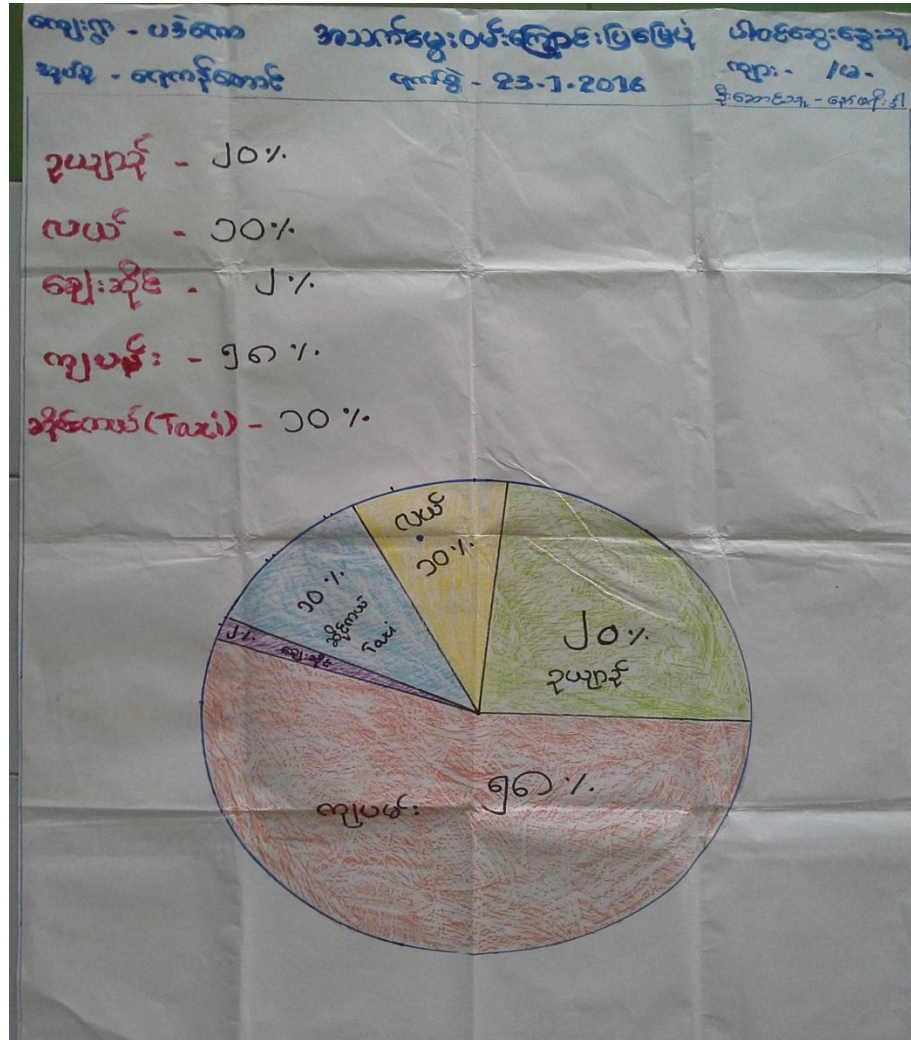 ကျေးရွာ - ပဒဲကော အသက်မွေးဝမ်းကြောင်းပြမြေပုံ ပါဝင်ဆွေးနွေးသူ
အုပ်စု - ရေကန်တောင် ရက်စွဲ - 23.1.2016 ကျား- /မ-
ဥယျာဉ် - ၂၀%
လယ် - ၁၀%
ဈေးဆိုင် - ၂%
ကျပန်း - ၅၈%
ဆိုင်ကယ်(Taxi) - ၁၀%
လယ်
၁၀%
၁၀%
ဆိုင်ကယ်
Taxi
၂၀%
ဥယျာဉ်
၂%
ဈေးဆိုင်
၅၈%
ကျပန်း